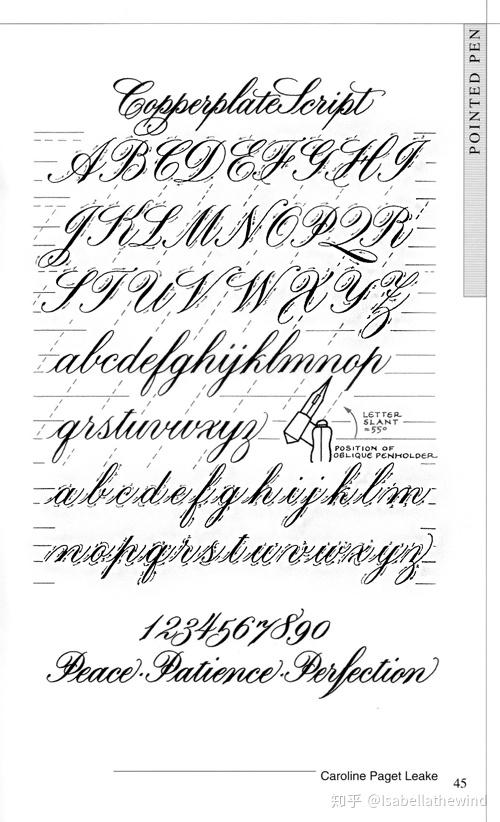 POINTED PEN
Copperplate Script
A B C D E F G H I
J K L M N O P Q R
S T U V W X Y Z
abcdefghijklmnop
qrstuvwxyz
LETTER
SLANT
=55°
POSITION OF
OBLIQUE PENHOLDER
a b c d e f g h i j k l m
n o p q r s t u v w x y z
1234567890
Peace · Patience · Perfection
Caroline Paget Leake
45
知乎 @Isabellathewind